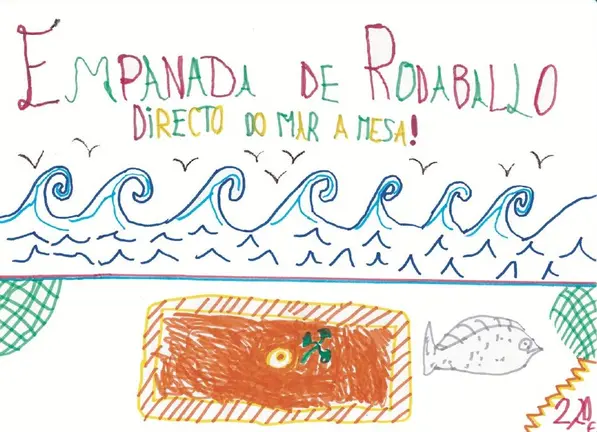 EMPANADA DE RODABALLO
DIRECTO DO MAR A MESA!